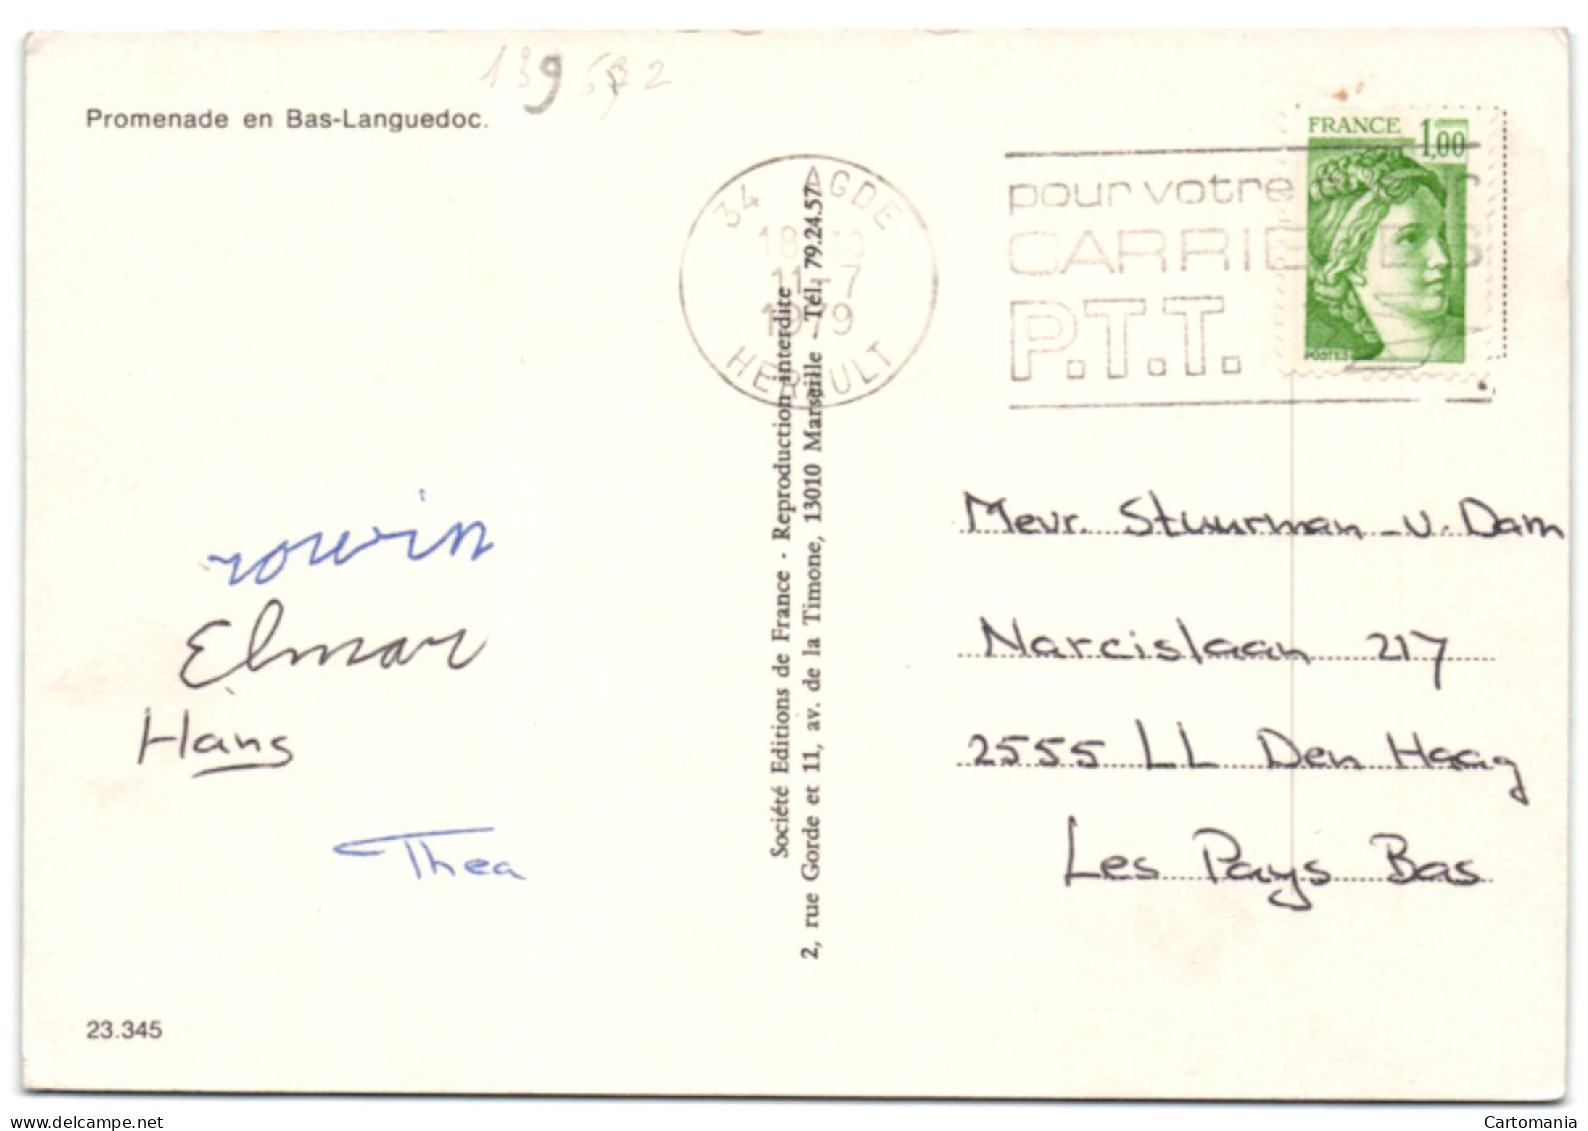 139572
Promenade en Bas-Languedoc.
FRANCE 1,00
POSTES
34 AGDE
18 30
11-7
1979
HERAULT
pour votre
CARRIERES
P.T.T.
Société Editions de France - Reproduction interdite
2, rue Gorde et 11, av. de la Timone, 13010 Marseille - Tél. 79.24.57
rowin
Elmar
Hans
Thea
Mevr. Stuurman-v. Dam
Narcislaan 217
2555 LL Den Haag
Les Pays Bas
23.345
www.delcampe.net
Cartomania